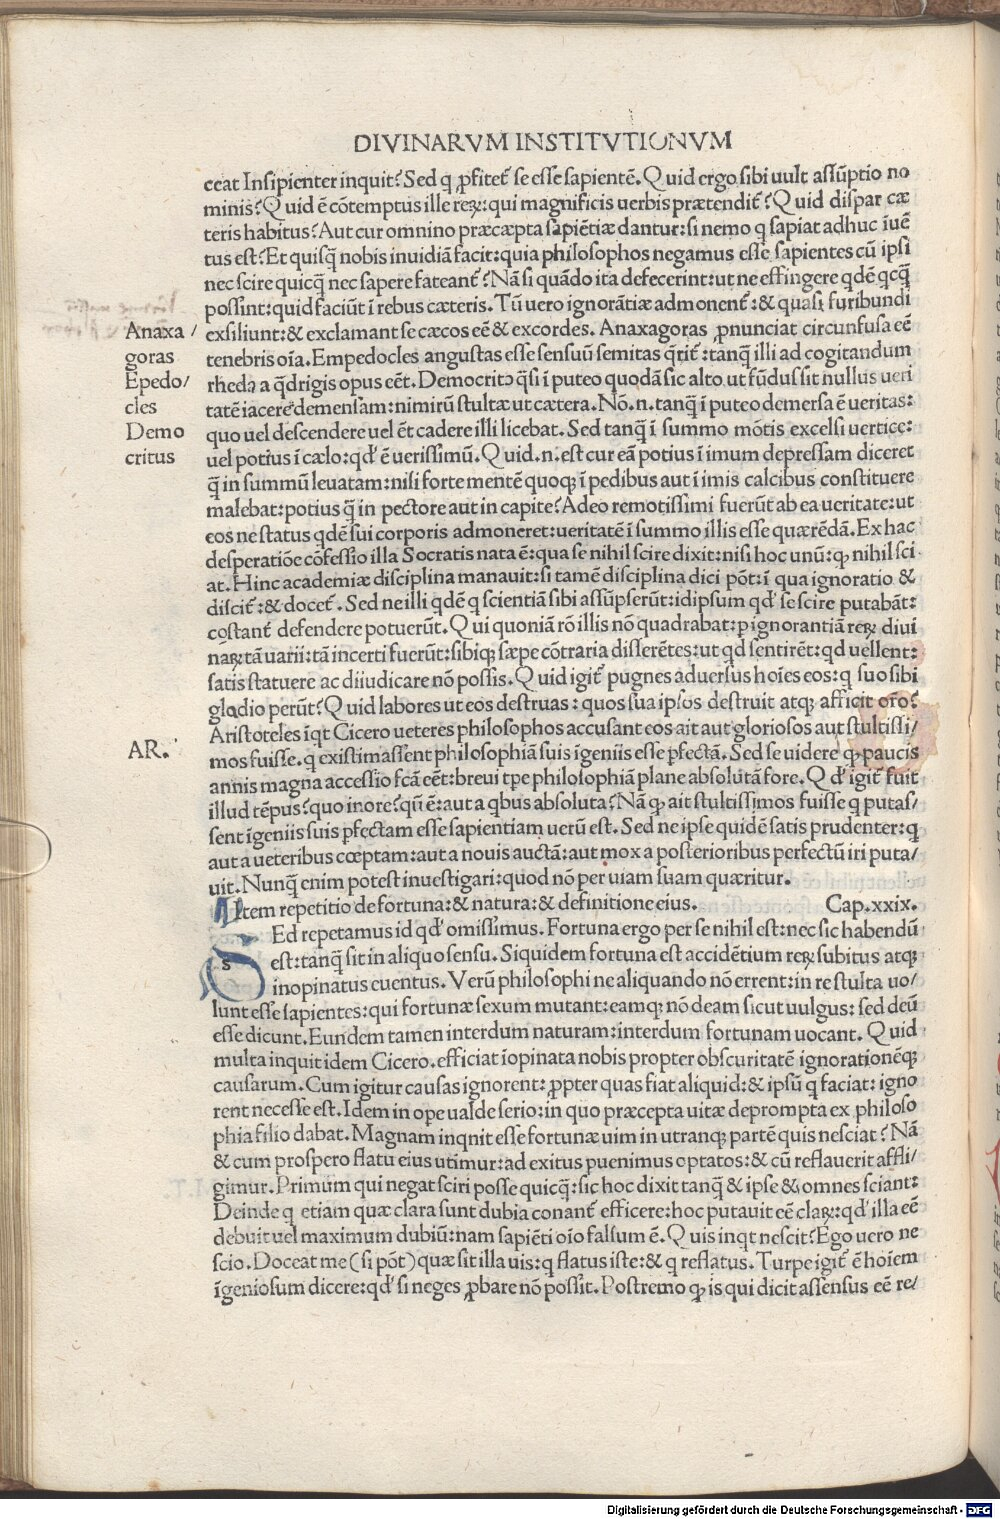 DIVINARVM INSTITVTIONVM
ceat Insipienter inquit? Sed q ꝓfitet᷑ se esse sapientē. Quid ergo sibi uult assūptio no
minis? Quid ē cōtemptus ille rerꝝ: qui magnificis uerbis prætendit᷑? Quid dispar cæ
teris habitus? Aut cur omnino præcæpta sapiētiæ dantur: si nemo q sapiat adhuc īuē
tus est? Et quisq̃ nobis inuidiā facit: quia philosophos negamus esse sapientes cū ipsi
nec scire quicq̃ nec sapere fateant᷑? Nā si quādo ita defecerint: ut ne effingere qdē qcq̃
possint: quid faciūt ī rebus cæteris. Tū uero ignorātiæ admonent᷑: & quasi furibundi
Anaxa/
goras
Epedo/
cles
Demo
critus
exsiliunt: & exclamant se cæcos eē & excordes. Anaxagoras ꝓnunciat circunfusa eē
tenebris oīa. Empedocles angustas esse sensuū semitas q̄rit᷑: tanq̃ illi ad cogitandum
rheda a q̄drigis opus eēt. Democritꝰ q̄si ī puteo quodā sic alto ut fūdus sit nullus ueri
tatē iacere demensam: nimirū stultæ ut cætera. Nō .n. tanq̃ ī puteo demersa ē ueritas:
quo uel descendere uel ēt cadere illi licebat. Sed tanq̃ ī summo mōtis excelsi uertice:
uel potius ī cælo: qđ ē uerissimū. Quid .n. est cur eā potius ī imum depressam diceret
q̃ in summū leuatam: nisi forte mentē quoqꝫ ī pedibus aut ī imis calcibus constituere
malebat: potius q̃ in pectore aut in capite? Adeo remotissimi fuerūt ab ea ueritate: ut
eos ne status qdē sui corporis admoneret: ueritatē ī summo illis esse quærēdā. Ex hac
desperatiōe cōfessio illa Socratis nata ē: qua se nihil scire dixit: nisi hoc unū: ꝙ nihil sci
at. Hinc academiæ disciplina manauit: si tamē disciplina dici pōt: ī qua ignoratio &
discit᷑: & docet᷑. Sed ne illi qdē q scientiā sibi assūpserūt: idipsum qđ se scire putabāt:
costant᷑ defendere potuerūt. Qui quoniā rō illis nō quadrabat: p ignorantiā rerꝝ diui
narꝝ tā uarii: tā incerti fuerūt: sibiqꝫ sæpe cōtraria disserētes: ut qd sentirēt: qd uellent:
satis statuere ac diiudicare nō possis. Quid igit᷑ pugnes aduersus hoīes eos: q suo sibi
gladio perūt? Quid labores ut eos destruas: quos sua ipsos destruit atqꝫ afficit orō?
AR.
Aristoteles īqt Cicero ueteres philosophos accusant eos ait aut gloriosos aut stultissi/
mos fuisse. q existimassent philosophiā suis īgeniis esse pfectā. Sed se uidere ꝙ paucis
annis magna accessio fcā eēt: breui tpe philosophiā plane absolutā fore. Qđ igit᷑ fuit
illud tēpus? quo in ore? qū ē: aut a qbus absoluta? Nā ꝙ ait stultissimos fuisse q putas/
sent īgeniis suis pfectam esse sapientiam uerū est. Sed ne ipse quidē satis prudenter: q
aut a ueteribus cœptam: aut a nouis auctā: aut mox a posterioribus perfectū iri puta/
uit. Nunq̃ enim potest inuestigari: quod nō per uiam suam quæritur.
Item repetitio de fortuna: & natura: & definitione eius. Cap. xxix.
SEd repetamus id qđ omissimus. Fortuna ergo per se nihil est: nec sic habendū
est: tanq̃ sit in aliquo sensu. Siquidem fortuna est accidētium rerꝝ subitus atqꝫ
inopinatus euentus. Verū philosophi ne aliquando nō errent: in re stulta uo/
lunt esse sapientes: qui fortunæ sexum mutant: eamqꝫ nō deam sicut uulgus: sed deū
esse dicunt. Eundem tamen interdum naturam: interdum fortunam uocant. Quid
multa inquit idem Cicero. efficiat īopinata nobis propter obscuritatē ignorationēqꝫ
causarum. Cum igitur causas ignorent: ꝓpter quas fiat aliquid: & ipsū q faciat: igno
rent necesse est. Idem in ope ualde serio: in quo præcepta uitæ deprompta ex philoso
phia filio dabat. Magnam inqnit esse fortunæ uim in utranqꝫ partē quis nesciat? Nā
& cum prospero flatu eius utimur: ad exitus puenimus optatos: & cū reflauerit affli/
gimur. Primum qui negat sciri posse quicq̃: sic hoc dixit tanq̃ & ipse & omnes sciant:
Deinde q etiam quæ clara sunt dubia conant᷑ efficere: hoc putauit eē clarꝝ: qđ illa eē
debuit uel maximum dubiū: nam sapiēti oīo falsum ē. Quis inqt nescit? Ego uero ne
scio. Doceat me (si pōt) quæ sit illa uis: q flatus iste: & q reflatus. Turpe igit᷑ ē hoīem
īgeniosum dicere: qđ si neges ꝓbare nō possit. Postremo ꝙ is qui dicit assensus eē re/
Digitalisierung gefördert durch die Deutsche Forschungsgemeinschaft - DFG